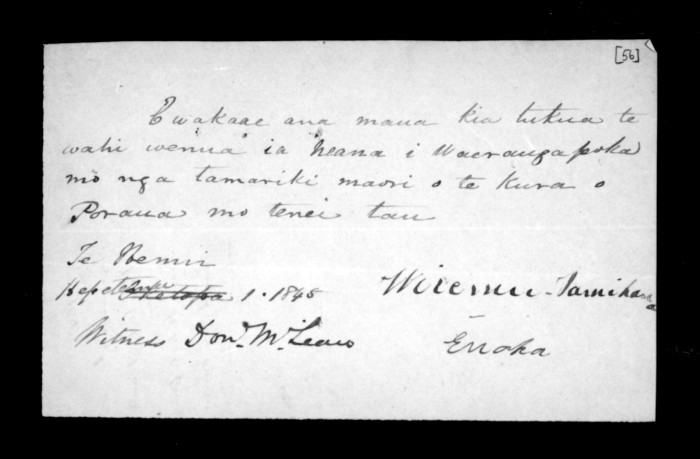 [56]
E wakaae ana maua kia tukua te
wahi wenua ia Neana i Waerangapoka
mo nga tamariki maori o te kura o
Poraua mo tenei tau
Te
Hepetema 1. 1845
Wiremu Tamihana
Witness Don.d McLean
Enoka